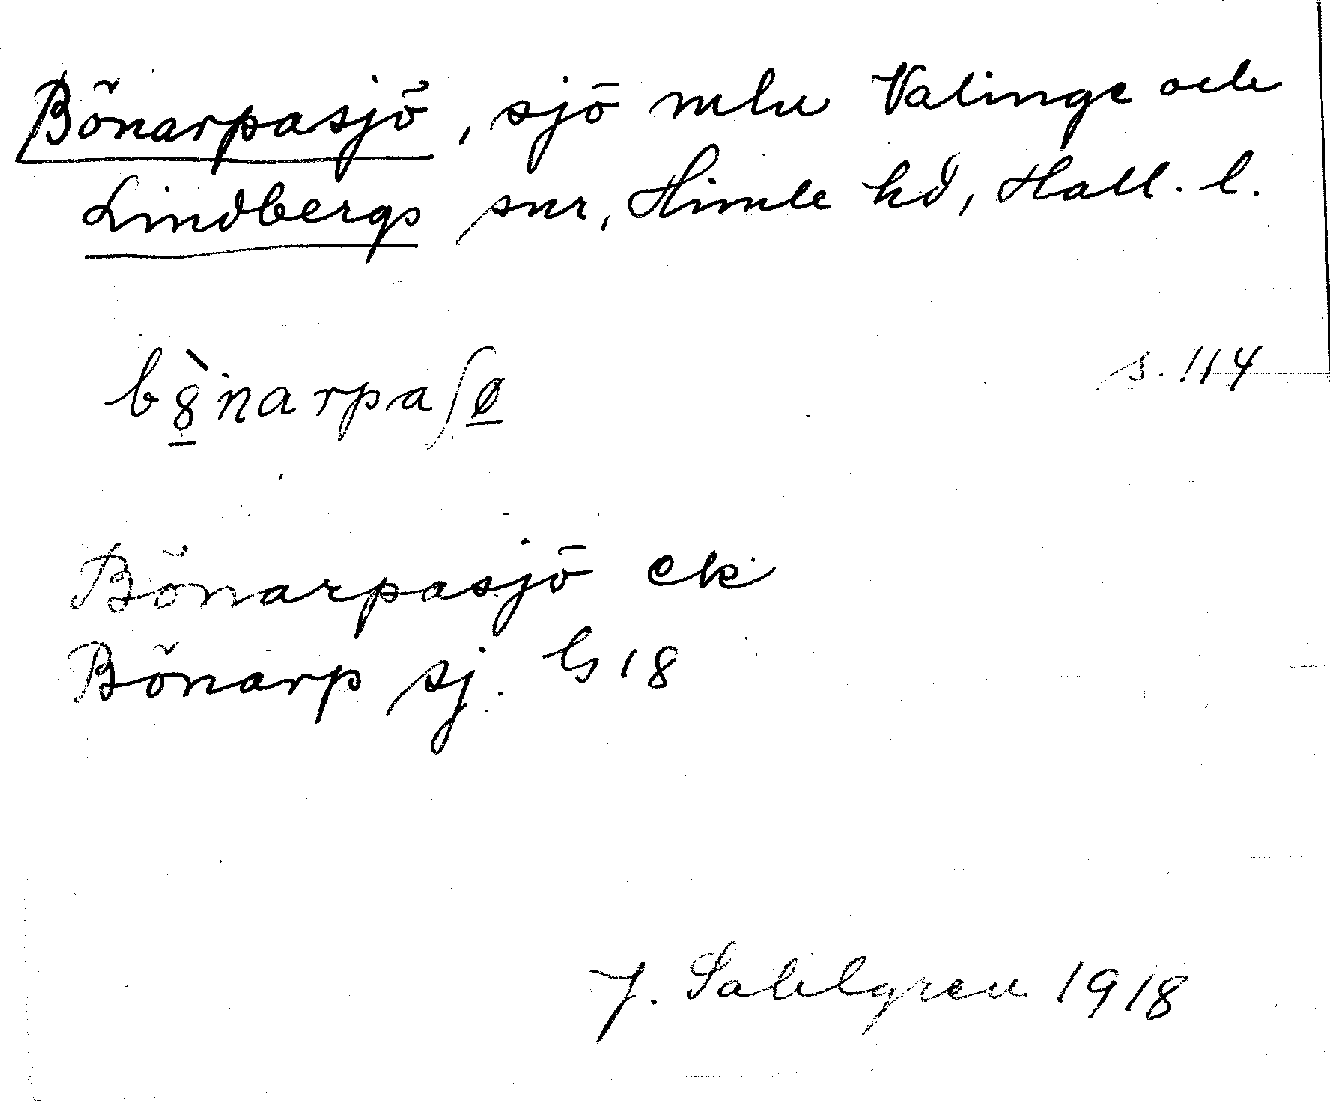 Bönarpasjö, sjö mlu Valinge och
Lindbergs snr, Himle hd, Hall. l.
b8̲̀narpaʃø̲ s. 114
Bönarpasjö ek
Bönarp sj. G 18
J. Sahlgren 1918